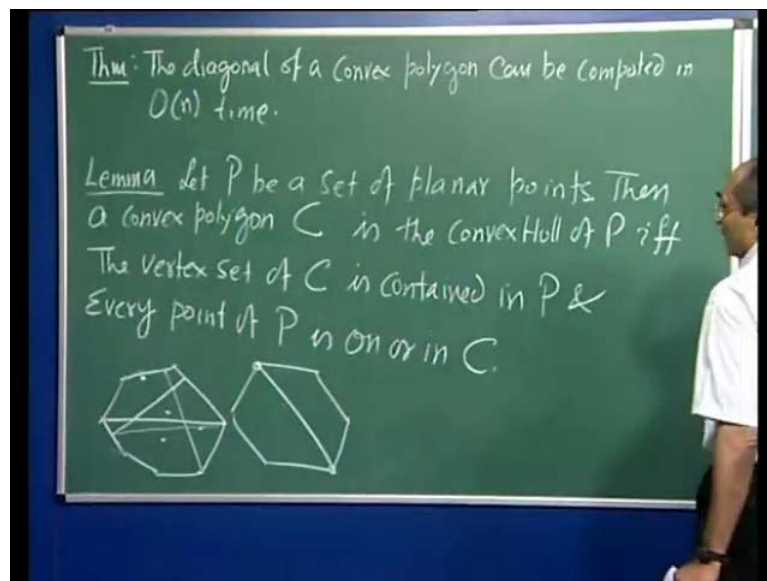 Thm: The diagonal of a convex polygon can be computed in
O(n) time.
Lemma Let P be a set of planar points. Then
a convex polygon C is the convex Hull of P iff
The vertex set of C is contained in P &
Every point of P is on or in C.